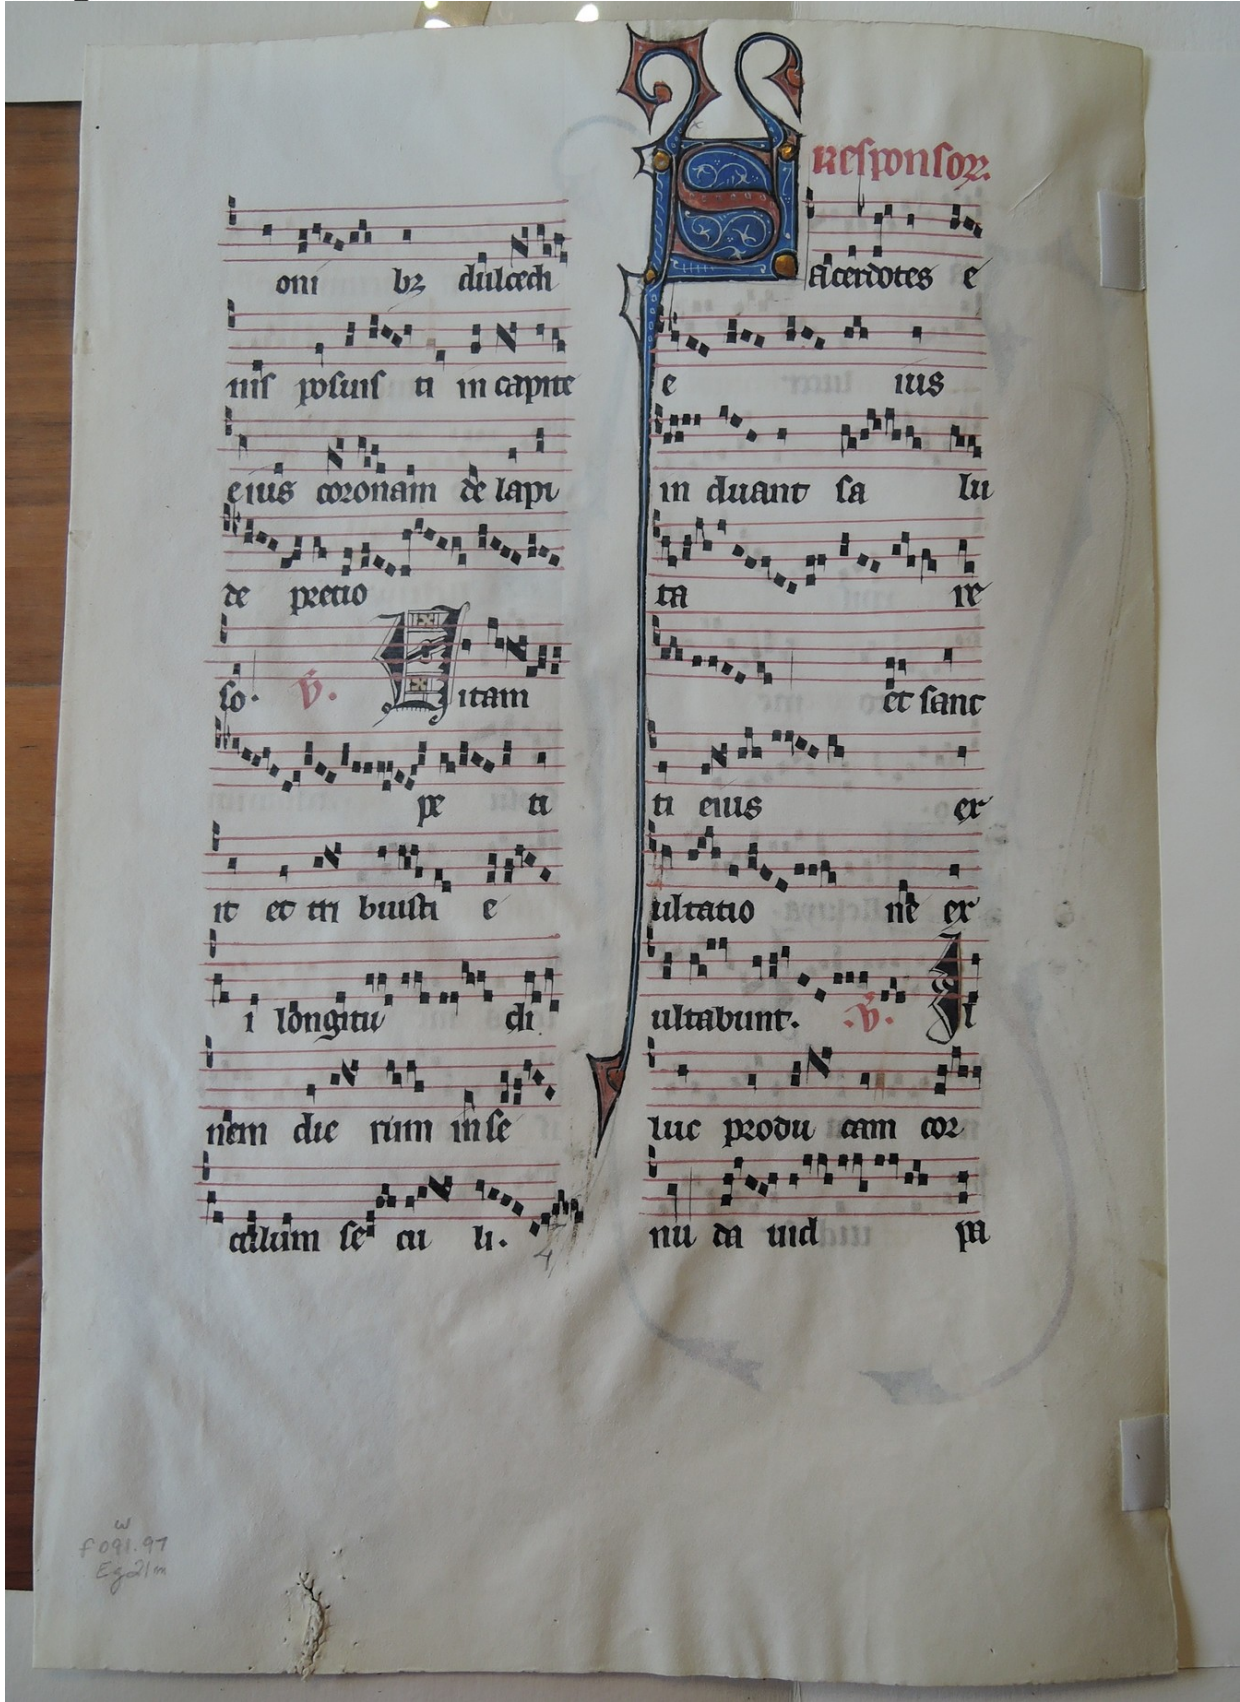 oni bꝫ dulcedi
nis posuis ti in capite
eius coronam de lapi
de precio
so. V̄. Vitam
pe ti
it et tri buisti e
i longitu di
nem die rum in se
culum se cu li.
4
Responsoꝝ.
Sacerdotes e
e ius
in duant sa lu
ta re
et sanc
ti eius ex
ultatio ne ex
ultabunt. .V̄. Il
luc produ cam cor
nu da uid pa
w
f091.97
Eg21m